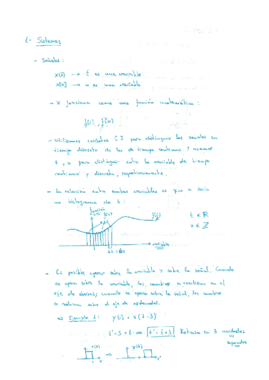 1- Sistemas
- Señales:
x(t) → t es una variable
x[n] → n es una variable
- x funciona como una función matemática:
f(t), f[n]
- Utilizamos corchetes [] para distinguir las señales en
tiempo discreto de las de tiempo continuo. Y usamos
t y n para distinguir entre la variable de tiempo
continuo y discreto, respectivamente.
- La relación entre ambas variables es que n sería
un histograma de t:
t ∈ ℝ
n ∈ ℤ
- Es posible operar sobre la variable y sobre la señal. Cuando
se opera sobre la variable, los cambios se realizan en el
eje de abscisas; cuando se opera sobre la señal, los cambios
se realizan sobre el eje de ordenadas.
⇒ Ejemplo 1: y(t) = x(t-3)
Retraso en 3 unidades
x(t) ⇒ y(t)